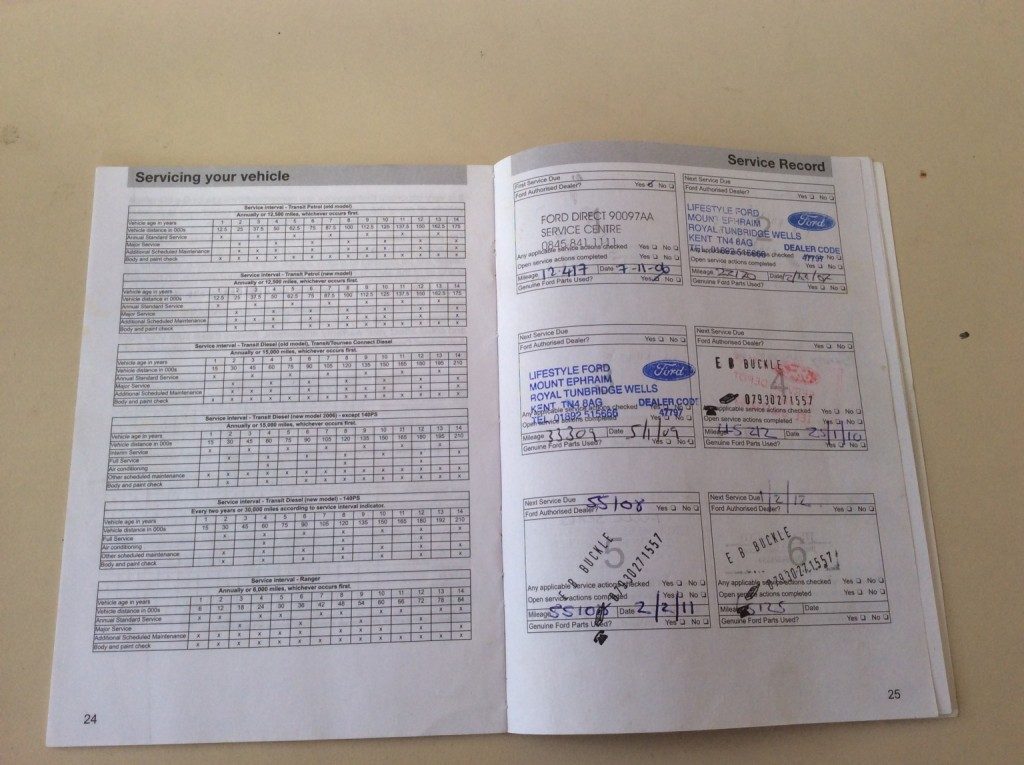 Servicing your vehicle
Service interval - Transit Petrol (old model)
Annually or 12,500 miles, whichever occurs first.
Vehicle age in years 1 2 3 4 5 6 7 8 9 10 11 12 13 14
Vehicle distance in 000s 12.5 25 37.5 50 62.5 75 87.5 100 112.5 125 137.5 150 162.5 175
Annual Standard Service
Major Service
Additional Scheduled Maintenance
Body and paint check
Service interval - Transit Petrol (new model)
Annually or 12,500 miles, whichever occurs first.
Vehicle age in years 1 2 3 4 5 6 7 8 9 10 11 12 13 14
Vehicle distance in 000s 12.5 25 37.5 50 62.5 75 87.5 100 112.5 125 137.5 150 162.5 175
Annual Standard Service
Major Service
Additional Scheduled Maintenance
Body and paint check
Service interval - Transit Diesel (old model), Transit/Tourneo Connect Diesel
Annually or 15,000 miles, whichever occurs first.
Vehicle age in years 1 2 3 4 5 6 7 8 9 10 11 12 13 14
Vehicle distance in 000s 15 30 45 60 75 90 105 120 135 150 165 180 195 210
Annual Standard Service
Major Service
Additional Scheduled Maintenance
Body and paint check
Service interval - Transit Diesel (new model 2006) - except 140PS
Annually or 15,000 miles, whichever occurs first.
Vehicle age in years 1 2 3 4 5 6 7 8 9 10 11 12 13 14
Vehicle distance in 000s 15 30 45 60 75 90 105 120 135 150 165 180 195 210
Interim Service
Full Service
Air conditioning
Other scheduled maintenance
Body and paint check
Service interval - Transit Diesel (new model) - 140PS
Every two years or 30,000 miles according to service interval indicator.
Vehicle age in years 1 2 3 4 5 6 7 8 9 10 11 12 13 14
Vehicle distance in 000s 15 30 45 60 75 90 105 120 135 150 165 180 195 210
Full Service
Air conditioning
Other scheduled maintenance
Body and paint check
Service interval - Ranger
Annually or 6,000 miles, whichever occurs first.
Vehicle age in years 1 2 3 4 5 6 7 8 9 10 11 12 13 14
Vehicle distance in 000s 6 12 18 24 30 36 42 48 54 60 66 72 78 84
Annual Standard Service
Major Service
Additional Scheduled Maintenance
Body and paint check
24
Service Record
First Service Due
Ford Authorised Dealer? Yes No
FORD DIRECT 90097AA
SERVICE CENTRE
0845 841 1111
Any applicable service actions checked Yes No
Open service actions completed Yes No
Mileage 12417 Date 7-11-06
Genuine Ford Parts Used? Yes No
Next Service Due
Ford Authorised Dealer? Yes No
2
LIFESTYLE FORD
MOUNT EPHRAIM
ROYAL TUNBRIDGE WELLS
KENT TN4 8AG
TEL 01892 515666
Ford
DEALER CODE
47797
Open service actions completed Yes No
Mileage Date
Genuine Ford Parts Used? Yes No
Next Service Due
Ford Authorised Dealer? Yes No
LIFESTYLE FORD
MOUNT EPHRAIM
ROYAL TUNBRIDGE WELLS
KENT TN4 8AG
TEL 01892 515666
Ford
DEALER CODE
47797
Open service actions completed
Mileage 33309 Date 5/1/09
Genuine Ford Parts Used? Yes No
Next Service Due
Ford Authorised Dealer? Yes No
4
E B BUCKLE
07930271557
applicable service actions checked Yes No
Open service actions completed Yes No
Mileage 45212 Date 25/1/10
Genuine Ford Parts Used? Yes No
Next Service Due 55108
Ford Authorised Dealer? Yes No
5
E B BUCKLE
07930271557
Any applicable service actions checked Yes No
Open service actions completed Yes No
Mileage 55108 Date 2/2/11
Genuine Ford Parts Used? Yes No
Next Service Due 1/2/12
Ford Authorised Dealer? Yes No
6
E B BUCKLE
07930271557
Any applicable service actions checked Yes No
Open service actions completed Yes No
Mileage Date
Genuine Ford Parts Used? Yes No
25